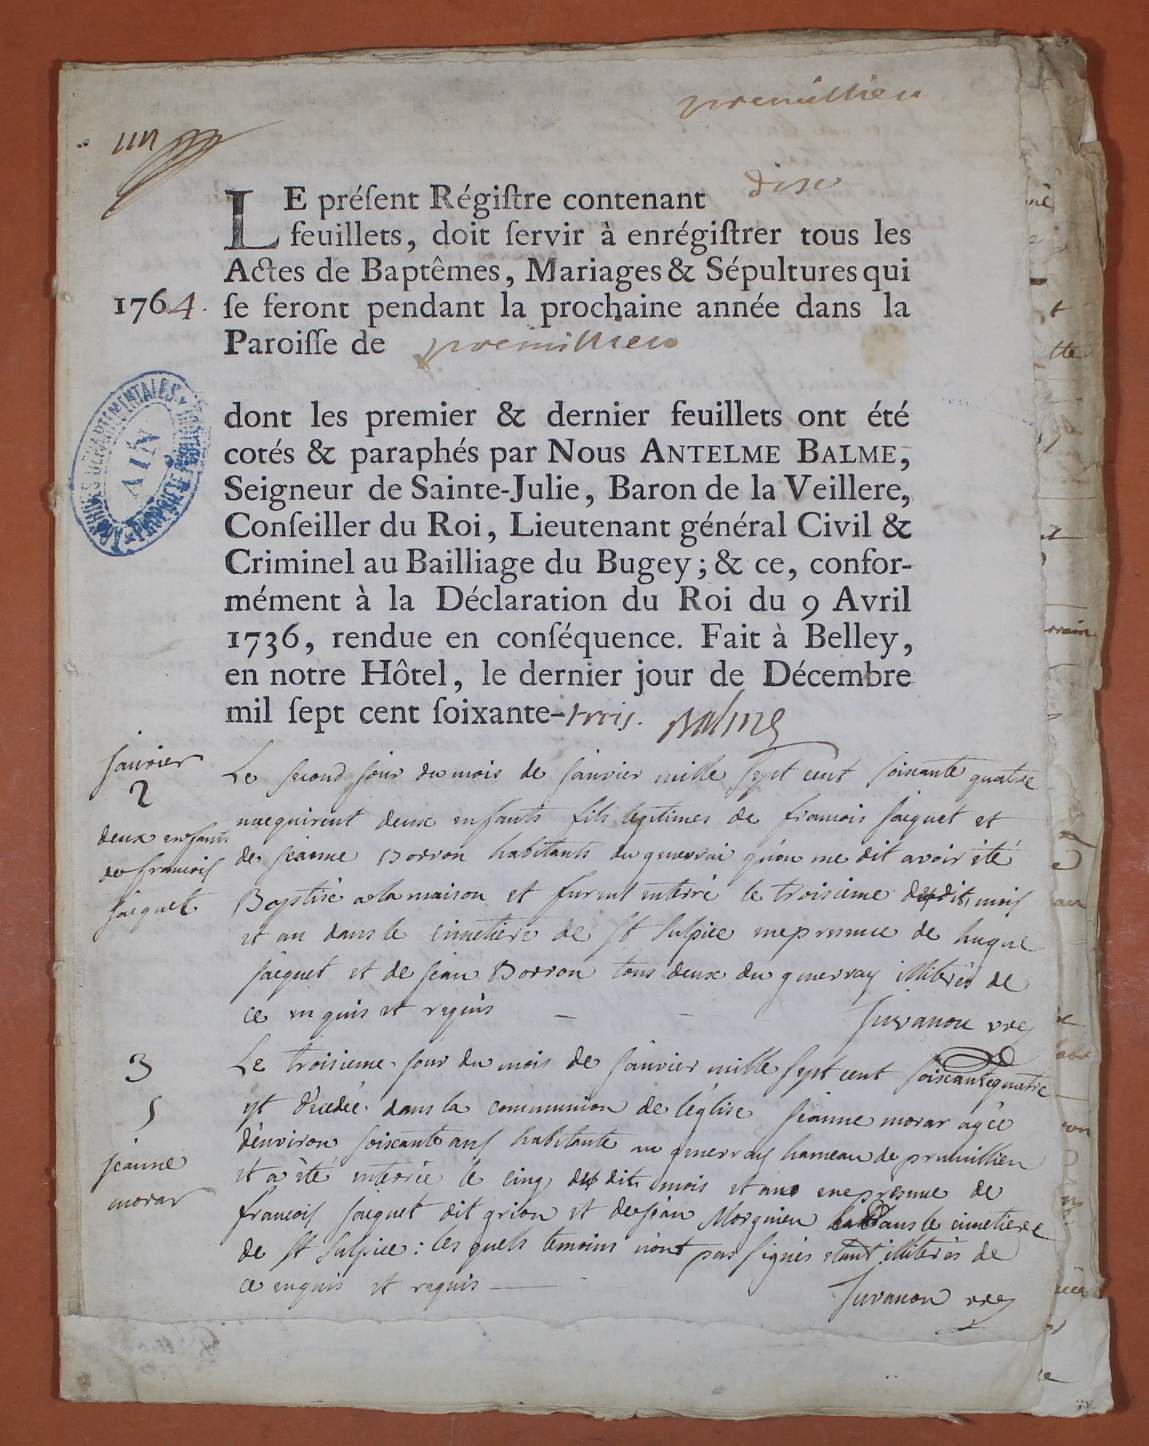 premillieu
un
LE préſent Régiſtre contenant dix
feuillets, doit ſervir à enrégiſtrer tous les
Actes de Baptêmes, Mariages & Sépultures qui
1764. ſe feront pendant la prochaine année dans la
Paroiſſe de premillieu
dont les premier & dernier feuillets ont été
cotés & paraphés par Nous ANTELME BALME,
Seigneur de Sainte-Julie, Baron de la Veillere,
Conſeiller du Roi, Lieutenant général Civil &
Criminel au Bailliage du Bugey; & ce, confor-
mément à la Déclaration du Roi du 9 Avril
1736, rendue en conſéquence. Fait à Belley,
en notre Hôtel, le dernier jour de Décembre
mil ſept cent ſoixante-trois. Balme
ARCHIVES DEPARTEMENTALES
AIN
janvier
2
deux enfants
de francois
jacquet
Le second jour du mois de janvier mille sept cent soixante quatre
nacquirent deux enfants fils legitimes de francois jacquet et
de jeanne Borron habitants du genevrai qu'on me dit avoir été
Baptisé a la maison et furent enterré le troisieme dudit mois
et an dans le cimetiere de st sulpice en presence de hugue
jacquet et de jean Borron tous deux du genevray illiterés de
ce enquis et requis
Juvanon
3
5
jeanne
morar
Le troisieme jour du mois de janvier mille sept cent soixante quatre
est decedée dans la communion de l'église jeanne morar agée
d'environ soixante ans habitante au genevray hameau de premillieu
et a été enterrée le cinq dudit mois et an en presence de
francois jacquet dit grion et de jean Morginieu dans le cimetiere
de st sulpice: les quels temoins n'ont pas signés etant illiterés de
ce enquis et requis
Juvanon